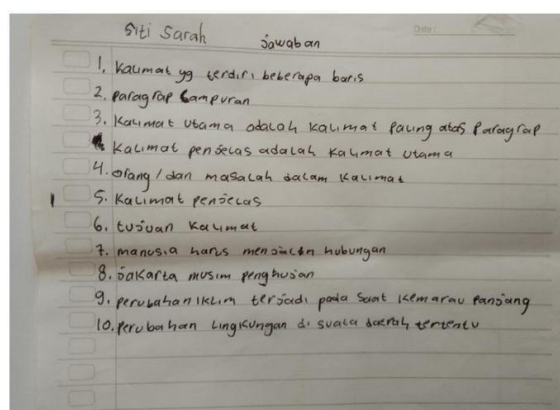 Siti Sarah
Jawaban
1. Kalimat yg terdiri beberapa baris
2. paragrap Campuran
3. Kalimat utama adalah kalimat paling atas paragrap
Kalimat penjelas adalah kalimat utama
4. orang / dan masalah dalam kalimat
5. Kalimat penjelas
6. tujuan kalimat
7. manusia harus menjalin hubungan
8. Jakarta musim penghujan
9. perubahan iklim terjadi pada saat kemarau panjang
10. perubahan lingkungan di suata daerah tertentu